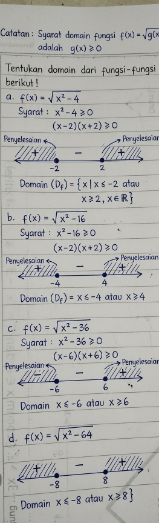 Catatan : Syarat domain fungsi f(x) = √g(x)
adalah g(x) ≥ 0
Tentukan domain dari fungsi-fungsi
berikut!
a. f(x) = √x²-4
Syarat : x²-4 ≥ 0
(x-2)(x+2) ≥ 0
Penyelesaian Penyelesaian
+ — +
-2 2
Domain (Df) = {x | x ≤ -2 atau
x ≥ 2, x ∈ R}
b. f(x) = √x²-16
Syarat : x²-16 ≥ 0
(x-2)(x+2) ≥ 0
Penyelesaian Penyelesaian
+ — +
-4 4
Domain (Df) = x ≤ -4 atau x ≥ 4
c. f(x) = √x²-36
Syarat : x²-36 ≥ 0
(x-6)(x+6) ≥ 0
Penyelesaian Penyelesaian
— +
-6 6
Domain x ≤ -6 atau x ≥ 6
d. f(x) = √x²-64
+ — +
-8 8
Domain x ≤ -8 atau x ≥ 8}